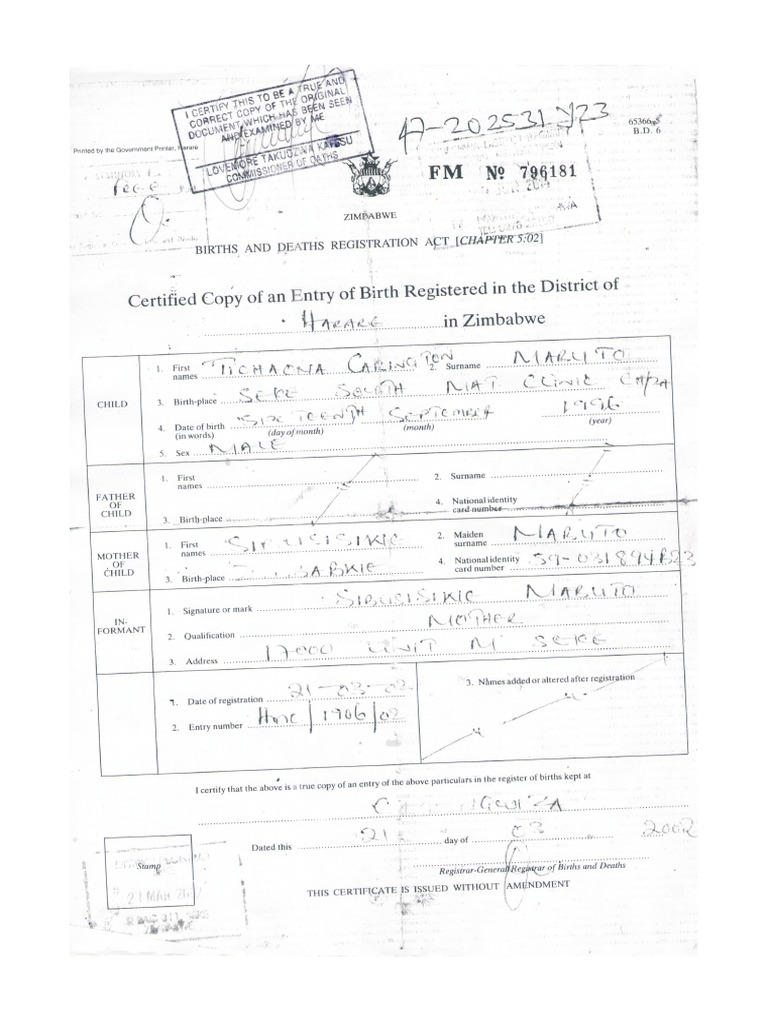 I CERTIFY THIS TO BE A TRUE AND
CORRECT COPY OF THE ORIGINAL
DOCUMENT WHICH HAS BEEN SEEN
AND EXAMINED BY ME
LOVEMORE TAKUDZWA
COMMISSIONER OF OATHS
47-202531 J23
65366
B.D. 6
Printed by the Government Printer, Harare
FM № 796181
ZIMBABWE
BIRTHS AND DEATHS REGISTRATION ACT [CHAPTER 5:02]
Certified Copy of an Entry of Birth Registered in the District of
HARARE in Zimbabwe
CHILD
1. First names TICHAONA CARINGTON 2. Surname MARUTO
3. Birth-place SEKE SOUTH MAT CLINIC CHPZA
4. Date of birth (in words) SIXTEENTH (day of month) SEPTEMBER (month) 1996 (year)
5. Sex MALE
FATHER OF CHILD
1. First names 2. Surname
3. Birth-place 4. National identity card number
MOTHER OF CHILD
1. First names SIBUSISIKIE 2. Maiden surname MARUTO
3. Birth-place 4. National identity card number 59-031894B23
IN-FORMANT
1. Signature or mark SIBUSISIKIE MARUTO
2. Qualification MOTHER
3. Address 17000 UNIT M SEKE
1. Date of registration 21-03-02
2. Entry number 1906/02
3. Names added or altered after registration
I certify that the above is a true copy of an entry of the above particulars in the register of births kept at
Dated this 21 day of 03 2002
Registrar-General/Registrar of Births and Deaths
THIS CERTIFICATE IS ISSUED WITHOUT AMENDMENT
Stamp